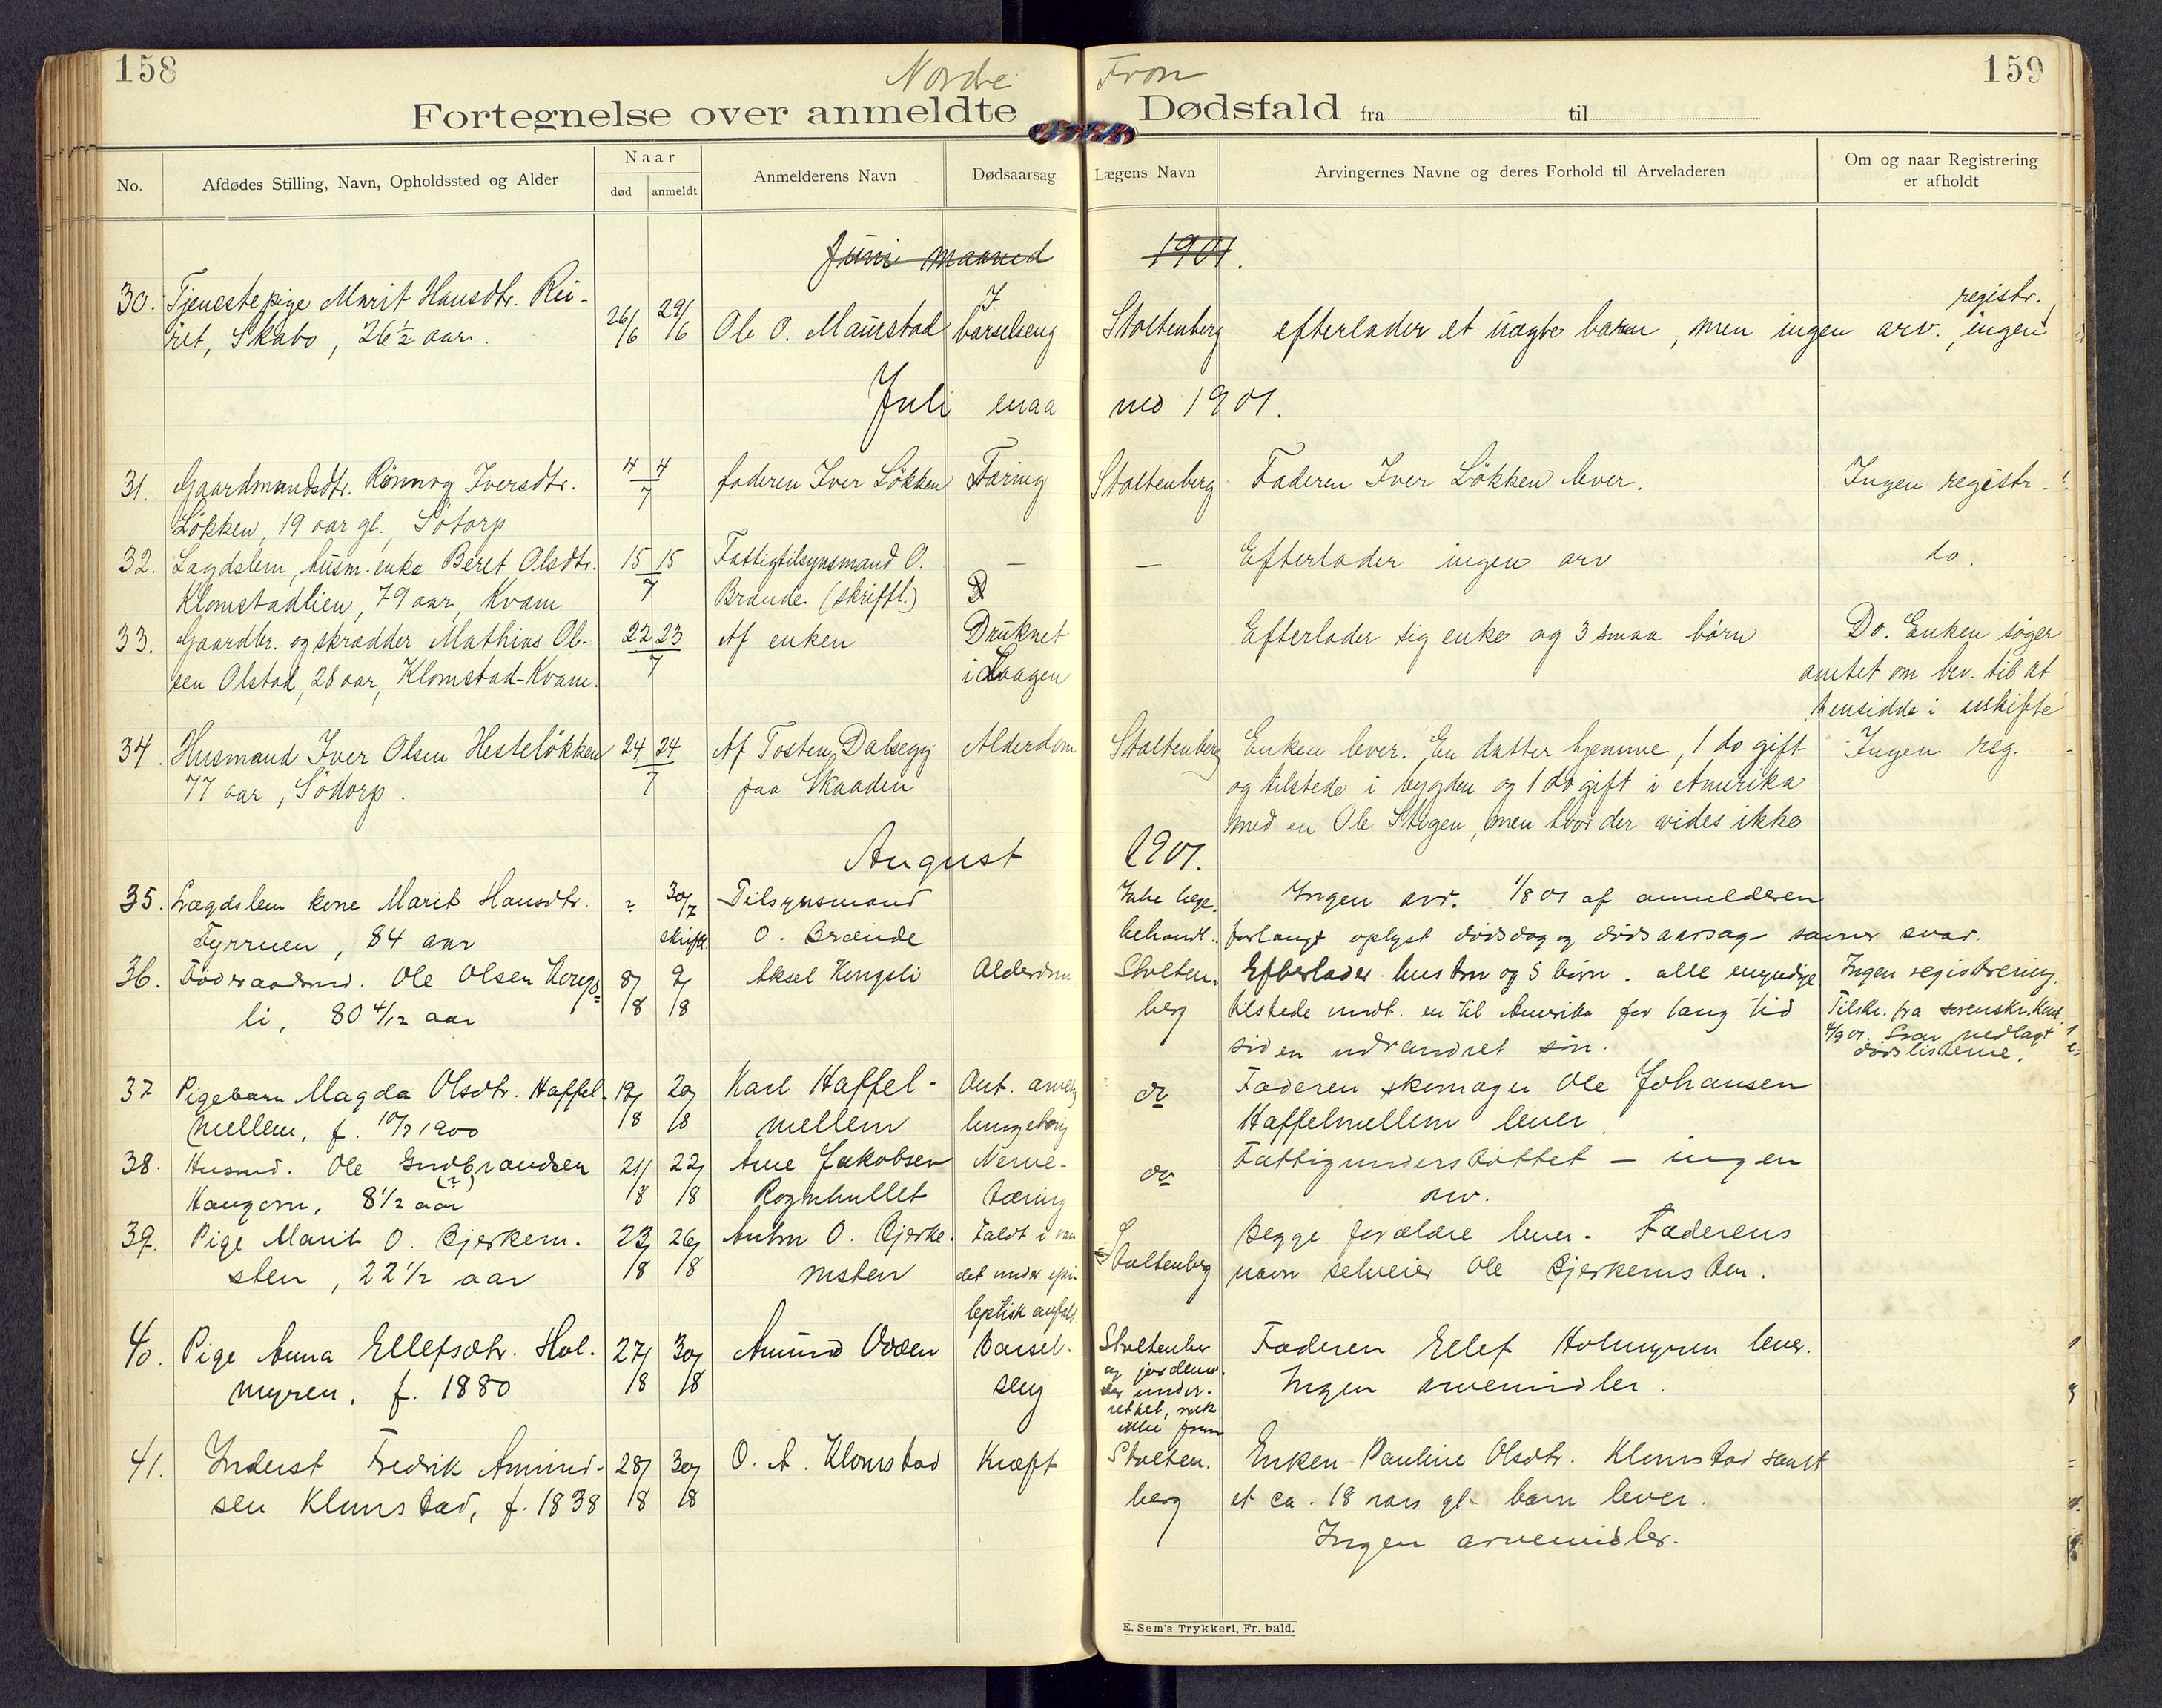 158
Nordre Fron
159
Fortegnelse over anmeldte Dødsfald fra til
No.
Afdødes Stilling, Navn, Opholdssted og Alder
Naar
død
anmeldt
Anmelderens Navn
Dødsaarsag
Lægens Navn
Arvingernes Navne og deres Forhold til Arveladeren
Om og naar Registrering
er afholdt
Juni maaned 1901.
30. Tjenestepige Marit Hansdtr. 26/6 29/6 Ole O. Maurstad I Stoltenberg efterlader et uægte barn, men ingen arv. ingen registr.
Skabo, 26½ aar. barselseng
Juli maaned 1901.
31. Gaardmandsdtr. Rønnog Iversdtr. 4 4/7 faderen Iver Løkken Tæring Stoltenberg Faderen Iver Løkken lever. Ingen registr.
Løkken, 19 aar gl., Sødorp
32. Lægdslem, husm.enke Beret Olsdtr. 15 15/7 Fattigtilsynsmand O. — — Efterlader ingen arv do.
Klomstadlien, 79 aar, Kvam Brænde (skriftl.)
33. Gaardbr. og skrædder Mathias Ol- 22 23/7 Af enken Druknet Efterlader sig enke og 3 smaa børn Do. Enken søger
sen Olstad, 28 aar, Klomstad-Kvam. i Laagen amtet om bev. til at
hensidde i uskifte
34. Husmand Iver Olsen Hesteløkken 24 24/7 Af Tosten Dalsegg Alderdom Stoltenberg Enken lever. En datter hjemme, 1 do gift Ingen reg.
77 aar, Sødorp. paa Skaaden og tilstede i bygden og 1 do gift i Amerika
med en Ole Stigen, men hvor der vides ikke
August 1901.
35. Lægdslem kone Marit Hansdtr. 30/7 Tilsynsmand Ikke læge- Ingen arv. 1/8 01 af anmelderen
84 aar skriftl. O. Brænde behandl. forlangt oplyst dødsdag og dødsaarsag - savner svar.
36. Føderaadsmd. Ole Olsen Kongs- 8/8 9/8 Aksel Kongsli Alderdom Stolten- Efterlader hustru og 5 børn. alle myndige Ingen registrering.
li, 80 4/12 aar berg tilstede undt. en til Amerika for lang tid Tilskr. fra sorenskr. Kont.
siden udvandret søn. 4/9 01. Svar nedlagt
dødslisterne.
37 Pigebarn Magda Olsdtr. Haffel- 19/8 20/8 Karl Haffel- Ant. arvelig do Faderen skomager Ole Johansen
mellem, f. 10/7 1900 mellem Haffelmellem lever.
38. Husmd. Ole Gudbrandsen 21/8 22/8 Arne Jakobsen Nerve- do Fattigunderstøttet - ingen
Haugom, 81½ aar (?) Rognhullet tæring arv.
39. Pige Marit O. Bjerkem- 23/8 26/8 Anton O. Bjerke- Faldt i van- Stoltenberg Begge forældre lever. Faderens
sten, 22½ aar msten det under epi- navn selveier Ole Bjerkemsten.
leptisk anfald.
40. Pige Anna Ellefsdtr. Hol- 27/8 30/8 Amund Odden Barsel- Stoltenber Faderen Ellef Holmyren lever.
myren. f. 1880 seng og jordemo- Ingen arvemidler.
der under-
rettet, rak
ikke frem
41. Inderst Fredrik Amund- 28/8 30/8 O. A. Klomstad Kræft Stolten- Enken Pauline Olsdtr. Klomstad samt
sen Klomstad, f. 1838 berg et ca. 18 aars gl. barn lever.
Ingen arvemidler.
E. Sem's Trykkeri, Fr.hald.